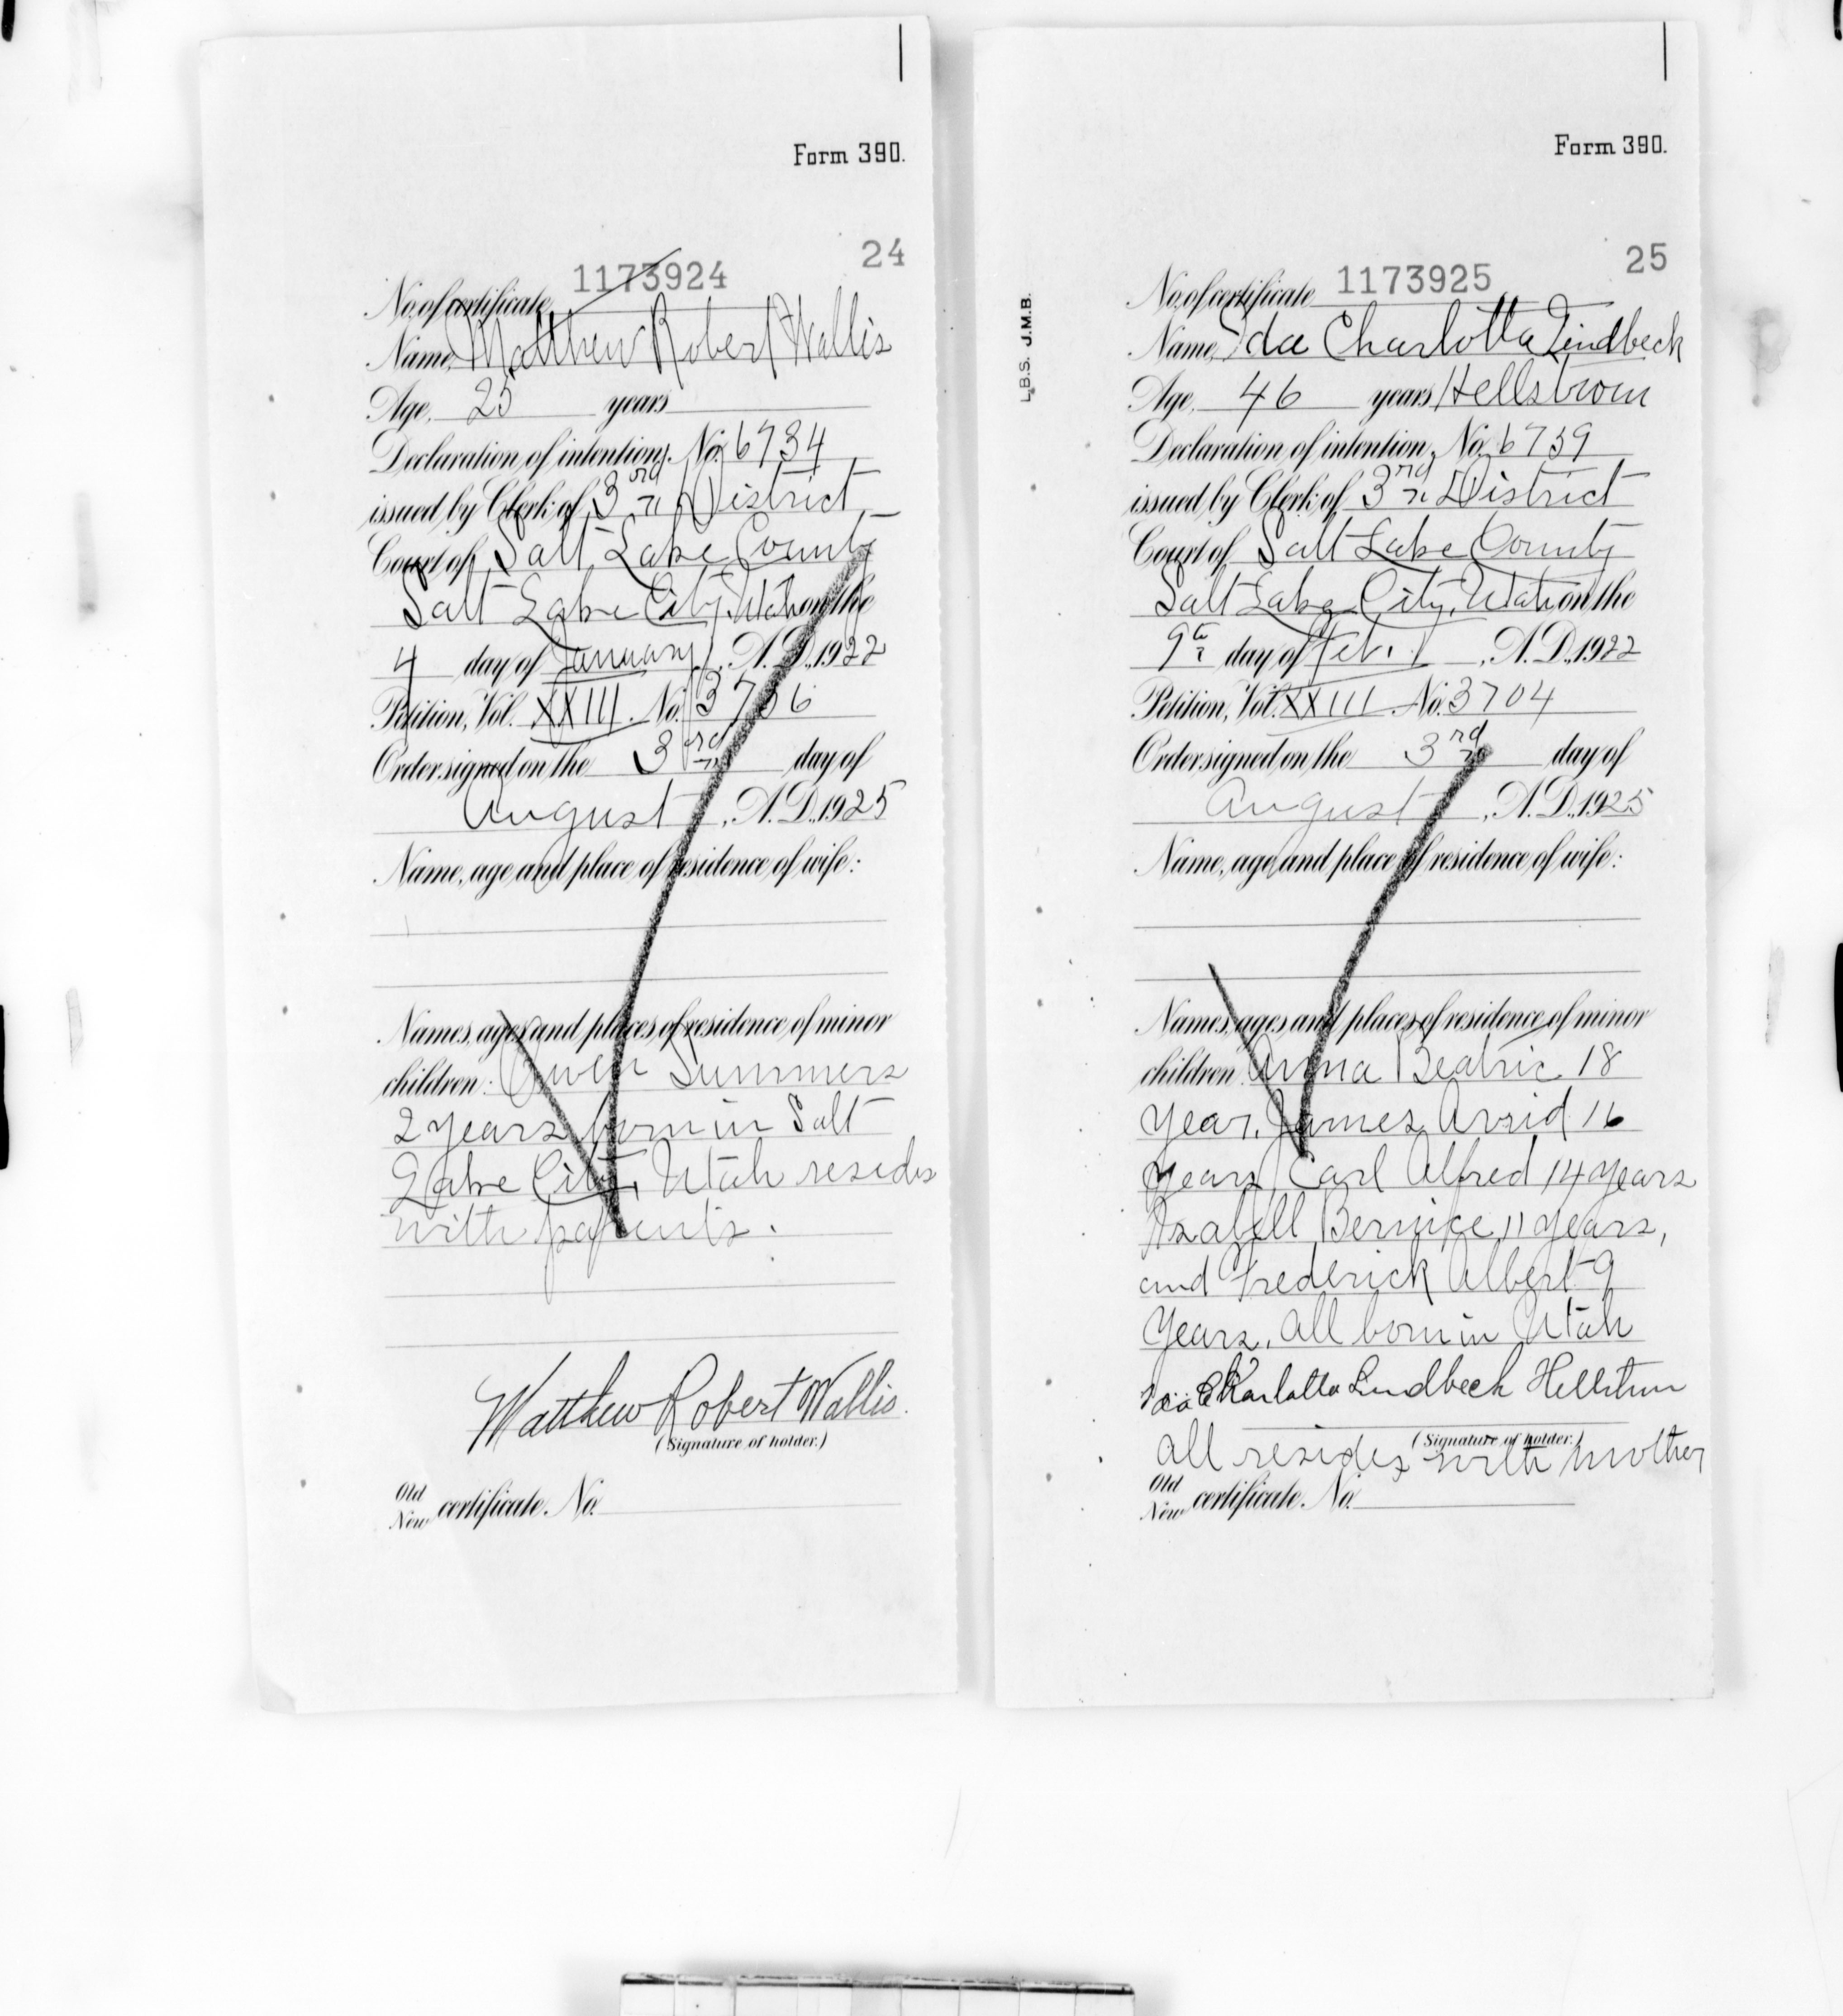 Form 390.
24
No. of certificate 1173924
Name, Matthew Robert Wallis
Age, 25 years
Declaration of intention, No. 6734
issued by Clerk of 3rd District
Court of Salt Lake County
Salt Lake City, Utah on the
4 day of January, A.D., 1922
Petition, Vol. XXIII. No. 3736
Order signed on the 3rd day of
August, A.D., 1925
Name, age and place of residence of wife:
Names, ages and places of residence of minor
children: Summers
2 years born in Salt
Lake City, Utah resides
with parents.
Matthew Robert Wallis.
(Signature of holder.)
Old
New certificate No.
L.B.S. J.M.B.
Form 390.
25
No. of certificate 1173925
Name, Ida Charlotta Lindbeck
Age, 46 years Hellstrom
Declaration of intention, No. 6759
issued by Clerk of 3rd District
Court of Salt Lake County
Salt Lake City, Utah on the
9th day of Feb., A.D., 1922
Petition, Vol. XXIII No. 3704
Order signed on the 3rd day of
August, A.D., 1925
Name, age and place of residence of wife:
Names, ages and places of residence of minor
children: Anna Beatric 18
year, James Arvid 16
years Carl Alfred 14 years
Isabell Bernice 11 years,
and Frederick Albert 9
years, all born in Utah
Ida Charlotta Lindbeck Hellstrom
(Signature of holder.)
all resides with mother
Old
New certificate No.